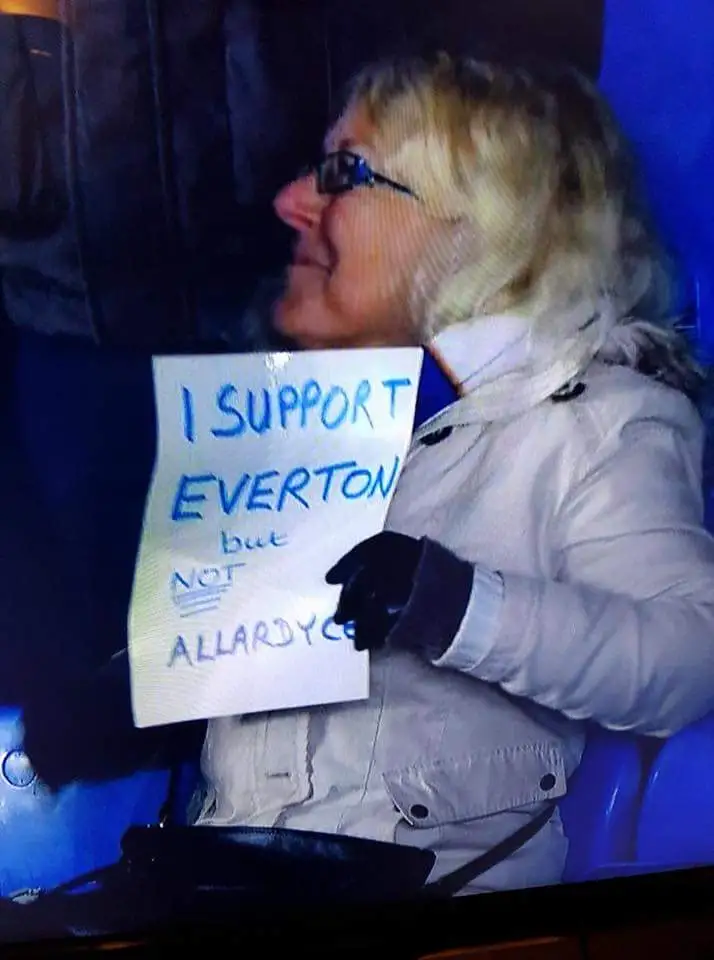 I SUPPORT
EVERTON
but
NOT
ALLARDYCE